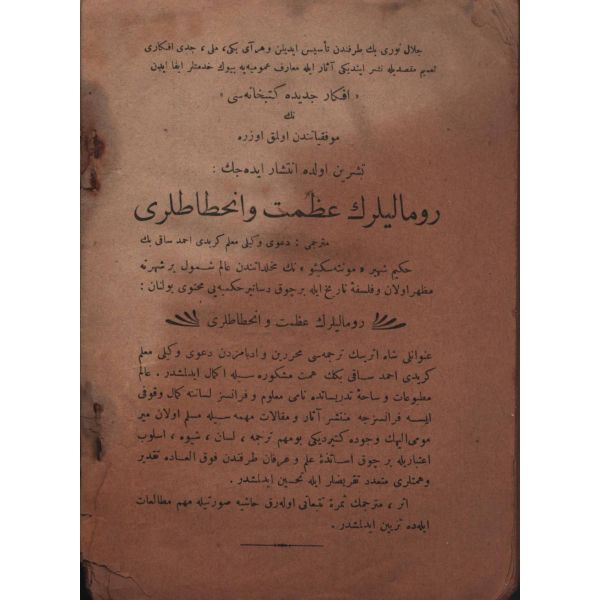 جلال نوری بك طرفندن تأسیس ایدیلن و هر آی یكی، ملی، جدی افكاری
تعمیم مقصدیله نشر ایتدیكی آثار ایله معارف عمومیه‌یه بیوك خدمتلر ایفا ایدن
« افكار جدیده كتبخانه‌سی »
نك
موفقیاتندن اولمق اوزره
تشرین اولده انتشار ایده‌جك :
رومالیلرك عظمت وانحطاطلری
مترجمی : دعوی وكیلی معلم كریدی احمد ساقی بك
حكیم شهیر « مونته‌سكیو » نك مخلداتندن عالم شمول بر شهرته
مظهر اولان و فلسفهٔ تاریخ ایله برچوق دساتیر حكمیه‌یی محتوی بولنان :
رومالیلرك عظمت وانحطاطلری
عنوانلی شاه اثرینك ترجمه‌سی محررین و ادبامزدن دعوی وكیلی معلم
كریدی احمد ساقی بكك همت مشكوره سیله اكمال ایدلمشدر . عالم
مطبوعات و ساحهٔ تدریساتده نامی معلوم و فرانسز لساننه كمال وقوفی
ایسه فرانسزجه منتشر آثار و مقالات مهمه سیله مسلم اولان میر
مومی‌الیهك وجوده كتیردیكی بومهم ترجمه ، لسان ، شیوه ، اسلوب
اعتباریله برچوق اساتذهٔ علم و عرفان طرفندن فوق العاده تقدیر
و همتلری متعدد تقریضلر ایله تحسین ایدلمشدر .
اثر ، مترجمك ثمرهٔ تتبعاتی اوله‌رق حاشیه صورتیله مهم مطالعات
ایله‌ده تزیین ایدلمشدر .